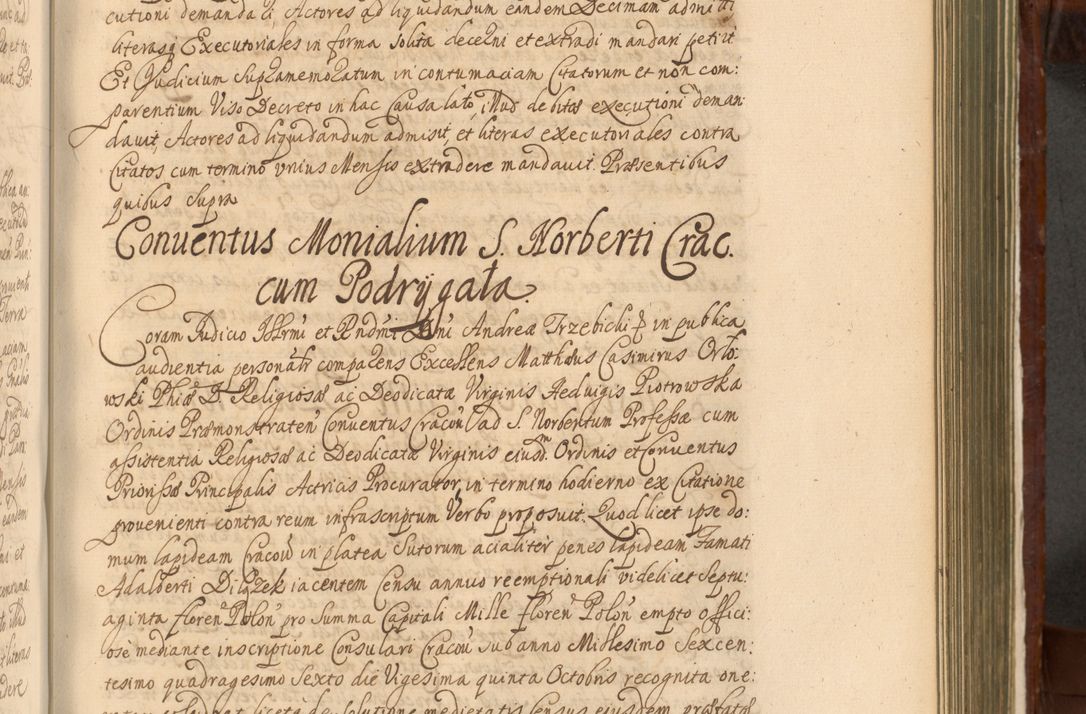 cutioni demandaci, Actores ad liquidandum eandem Decimam admitti
literasq Executoriales in forma solita decerni et extradi mandari petiit
Et Judicium Supramemoratum in contumaciam Citatorum et non com:
parentium Viso Decreto in hac Causa lato, illud debitæ executioni deman
davit, Actores ad liquidandum admisit, et literas executoriales contra
Citatos cum termino unius Mensis extradere mandavit. Præsentibus
quibus supra
Conventus Monialium S. Norberti Crac.
cum Podrÿgała.
Coram Judicio Illrmi et Rndmi Dni Andreæ Trzebicki in publica
audientia personalr comparens Excellens Matthæus Casimirus Orło:
wski Phiæ D. Religiosæ ac Deodicatæ Virginis Heduigis Piotrowska
Ordinis Præmonstraten Conventus Cracoū ad S. Norbertum Professæ cum
assistentia Religiosæ ac Deodicatæ Virginis eiusdm Ordinis et Conventus
Priorissæ Principalis Actricis Procurator, in termino hodierno ex Citatione
provenienti contra reum infrascriptum Verbo proposuit. Quod licet ipse do:
mum lapideam Cracoū in platea Sutorum acialiter penes lapideam Famati
Adalberti iacentem Censu annuo reemptionali videlicet Septu:
aginta floren Polon pro Summa Capitali Mille floren Polon empto offici:
ose mediante inscriptione Consulari Cracoū sub anno Millesimo Sexcen:
tesimo quadragesimo Sexto die Vigesima quinta Octobris recognita one: